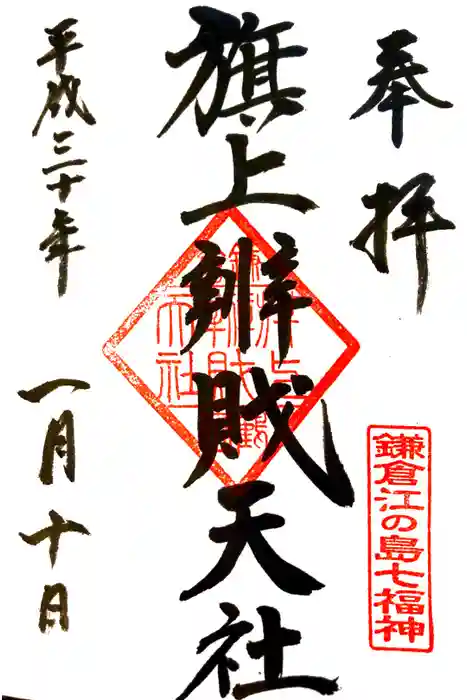 奉拝
鎌倉江の島七福神
旗上辨財天社
平成三十年
一月十日